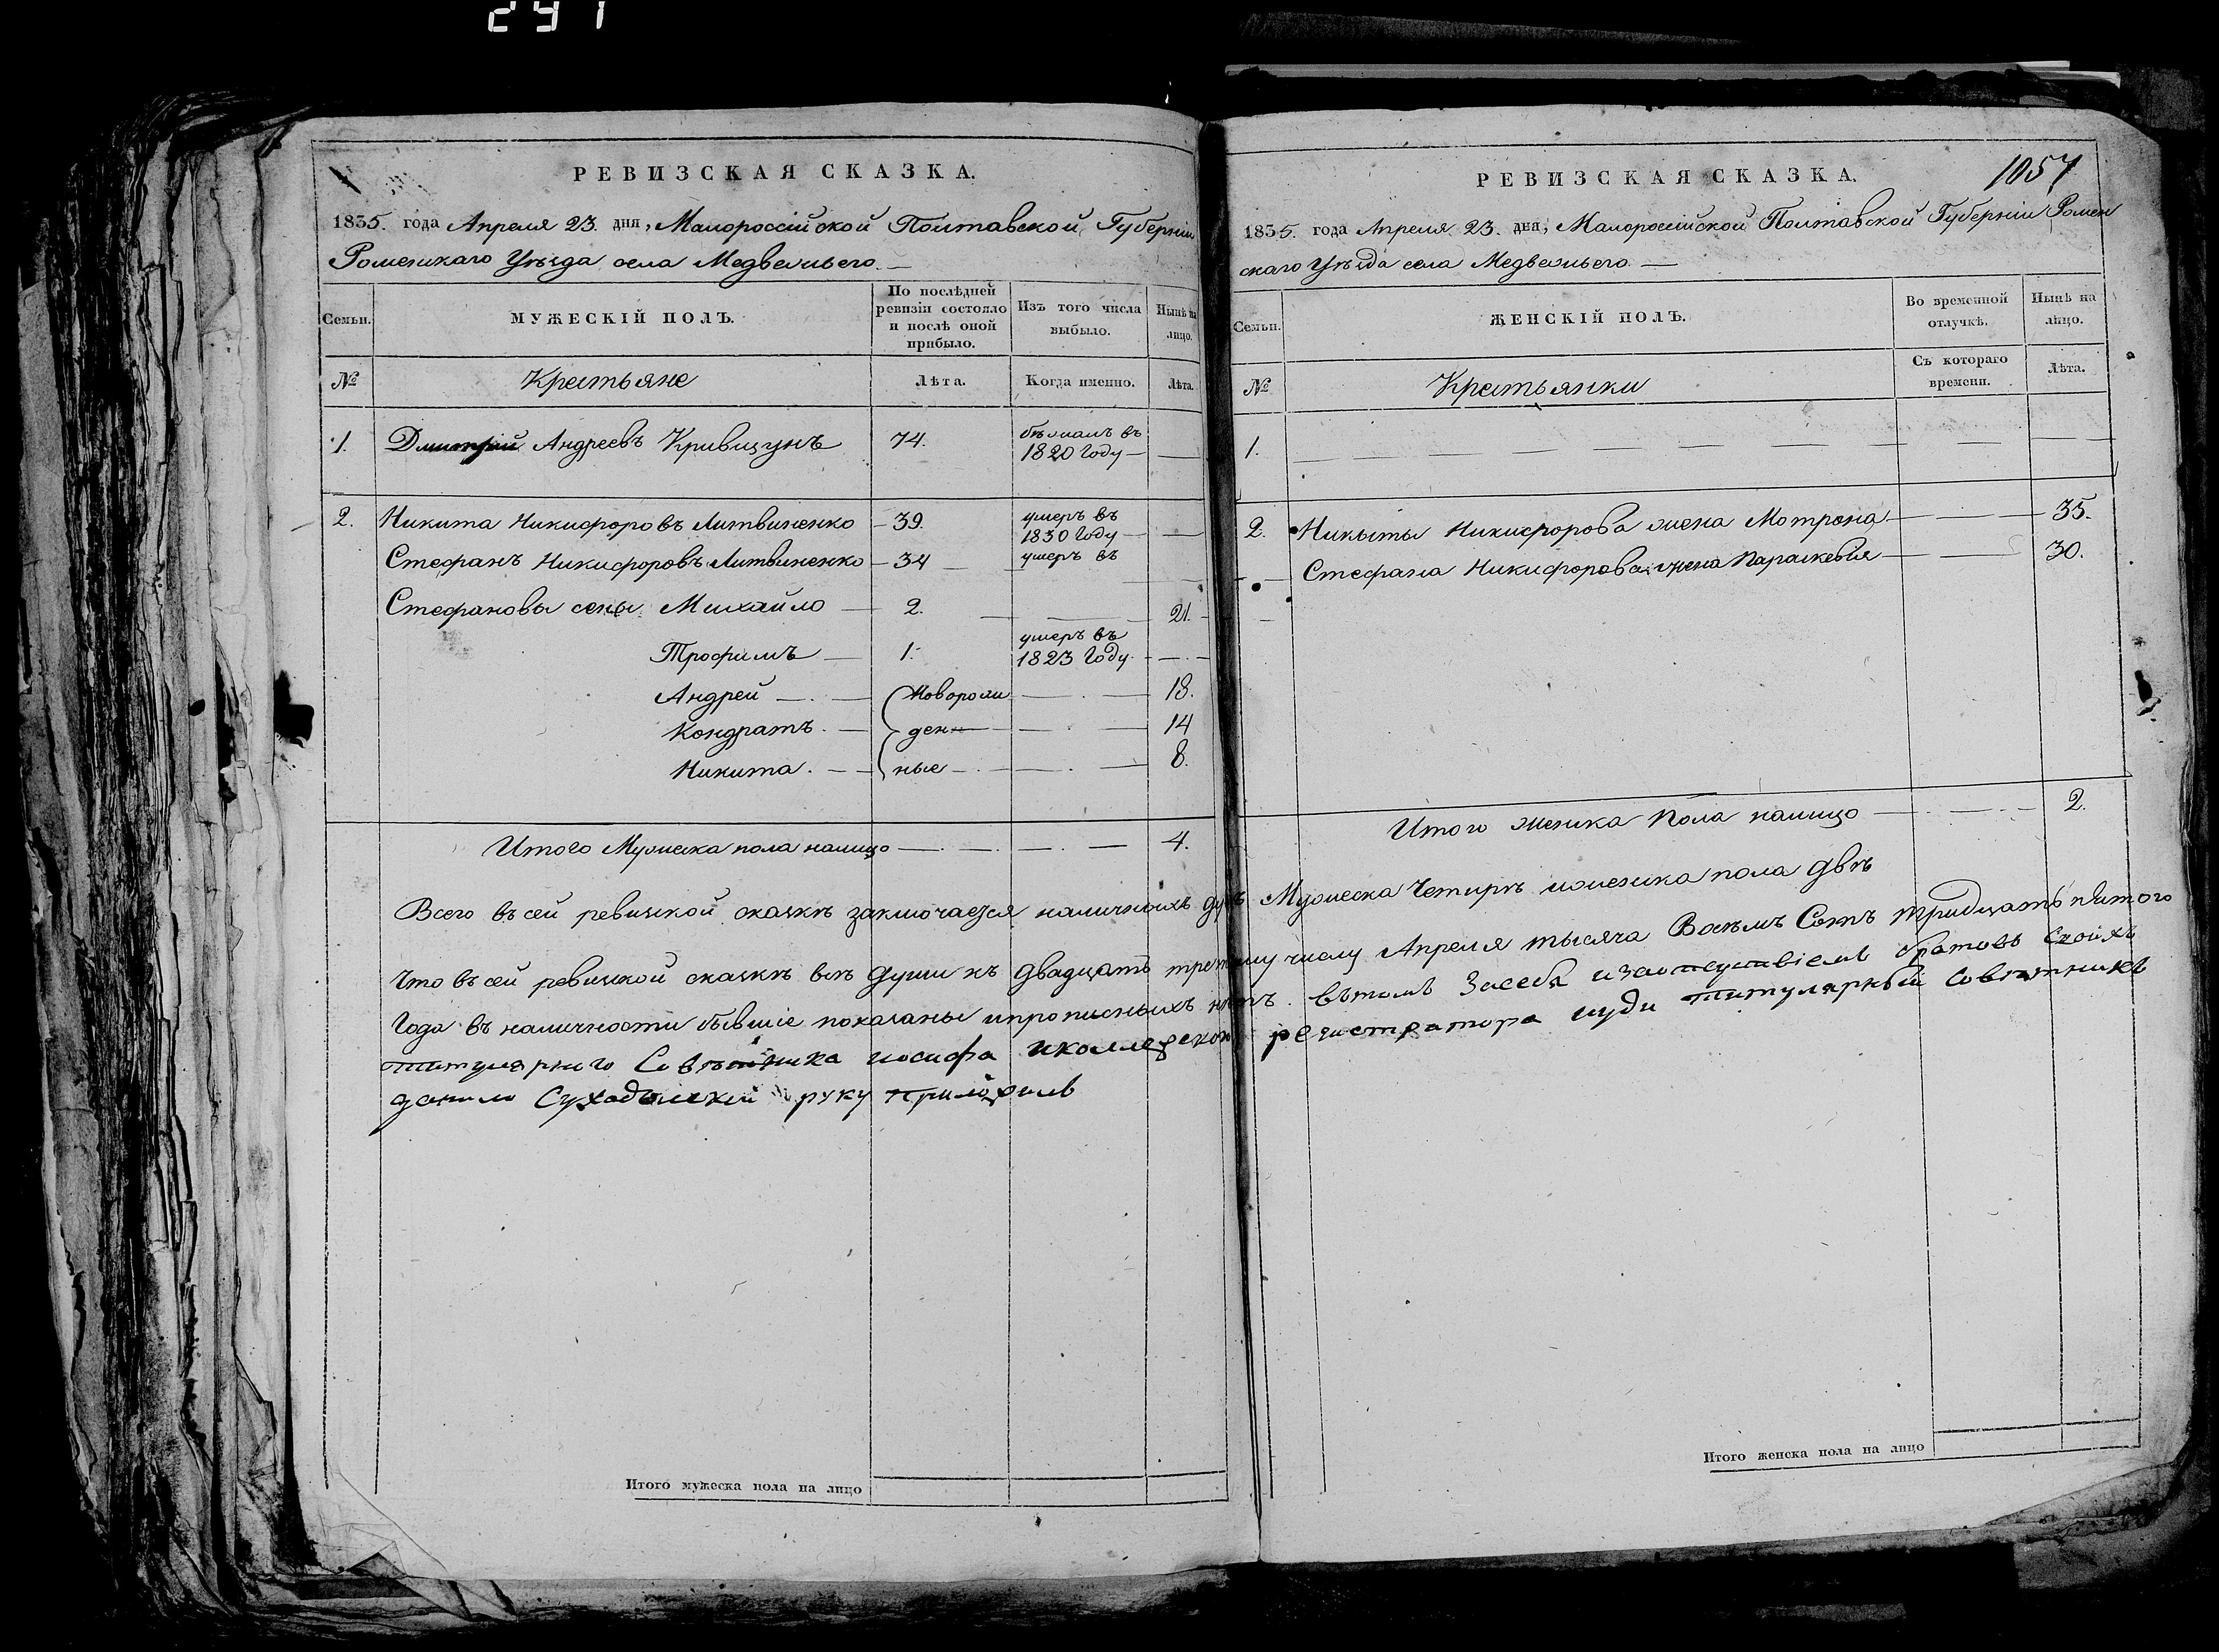 291
РЕВИЗСКАЯ СКАЗКА.
1835. года Апреля 23. дня, Малороссійской Полтавской Губерніи
Роменскаго Уѣзда села Медвежьего.
Семьи.
МУЖЕСКІЙ ПОЛЪ.
По послѣдней ревизіи состояло и послѣ оной прибыло.
Изъ того числа выбыло.
Нынѣ на лицо.
№
Крестьяне
Лѣта.
Когда именно.
Лѣта.
1. Дмитрій Андреевъ Кривицунъ 74. бѣжалъ въ 1820 Году
2. Никита Никифоровъ Литвиненко 39. умеръ въ 1830 Году
Стефанъ Никифоровъ Литвиненко 34 умеръ въ
Стефановы сены Михайло 2. 21.
Трофимъ 1. умеръ въ 1823 Году
Андрей Новорож 18.
Кондратъ ден 14
Никита ные 8.
Итого Мужеска пола налицо 4.
РЕВИЗСКАЯ СКАЗКА.
1057
1835. года Апреля 23. дня, Малороссійской Полтавской Губерніи Ромен
скаго Уѣзда села Медвежьего
Семьи.
ЖЕНСКІЙ ПОЛЪ.
Во временной отлучкѣ.
Нынѣ на лицо.
№
Крестьянки
Съ котораго времени.
Лѣта.
1.
2. Никиты Никифорова жена Мотрона 35.
Стефана Никифорова жена Параскевія 30.
Итого женска пола налицо 2.
Всего въ сей ревизкой сказкѣ заключается наличныхъ душъ Мужеска Четирѣ иженска пола двѣ
Что въ сей ревизкой сказкѣ всѣ души къ двадцать третьему числу Апреля тысяча Восѣмъ Сотъ тридцать пятого
Года въ наличности бывшіе показаны ипрописныхъ нѣтъ. вътомъ Засебя изаотсуствіемъ братовъ своихъ
титулярного Совѣтника иосифа иколлезскои регистратора иуди титулярный Совѣтникъ
данило Суходолскій руку приложилъ
Итого мужеска пола на лицо
Итого женска пола на лицо